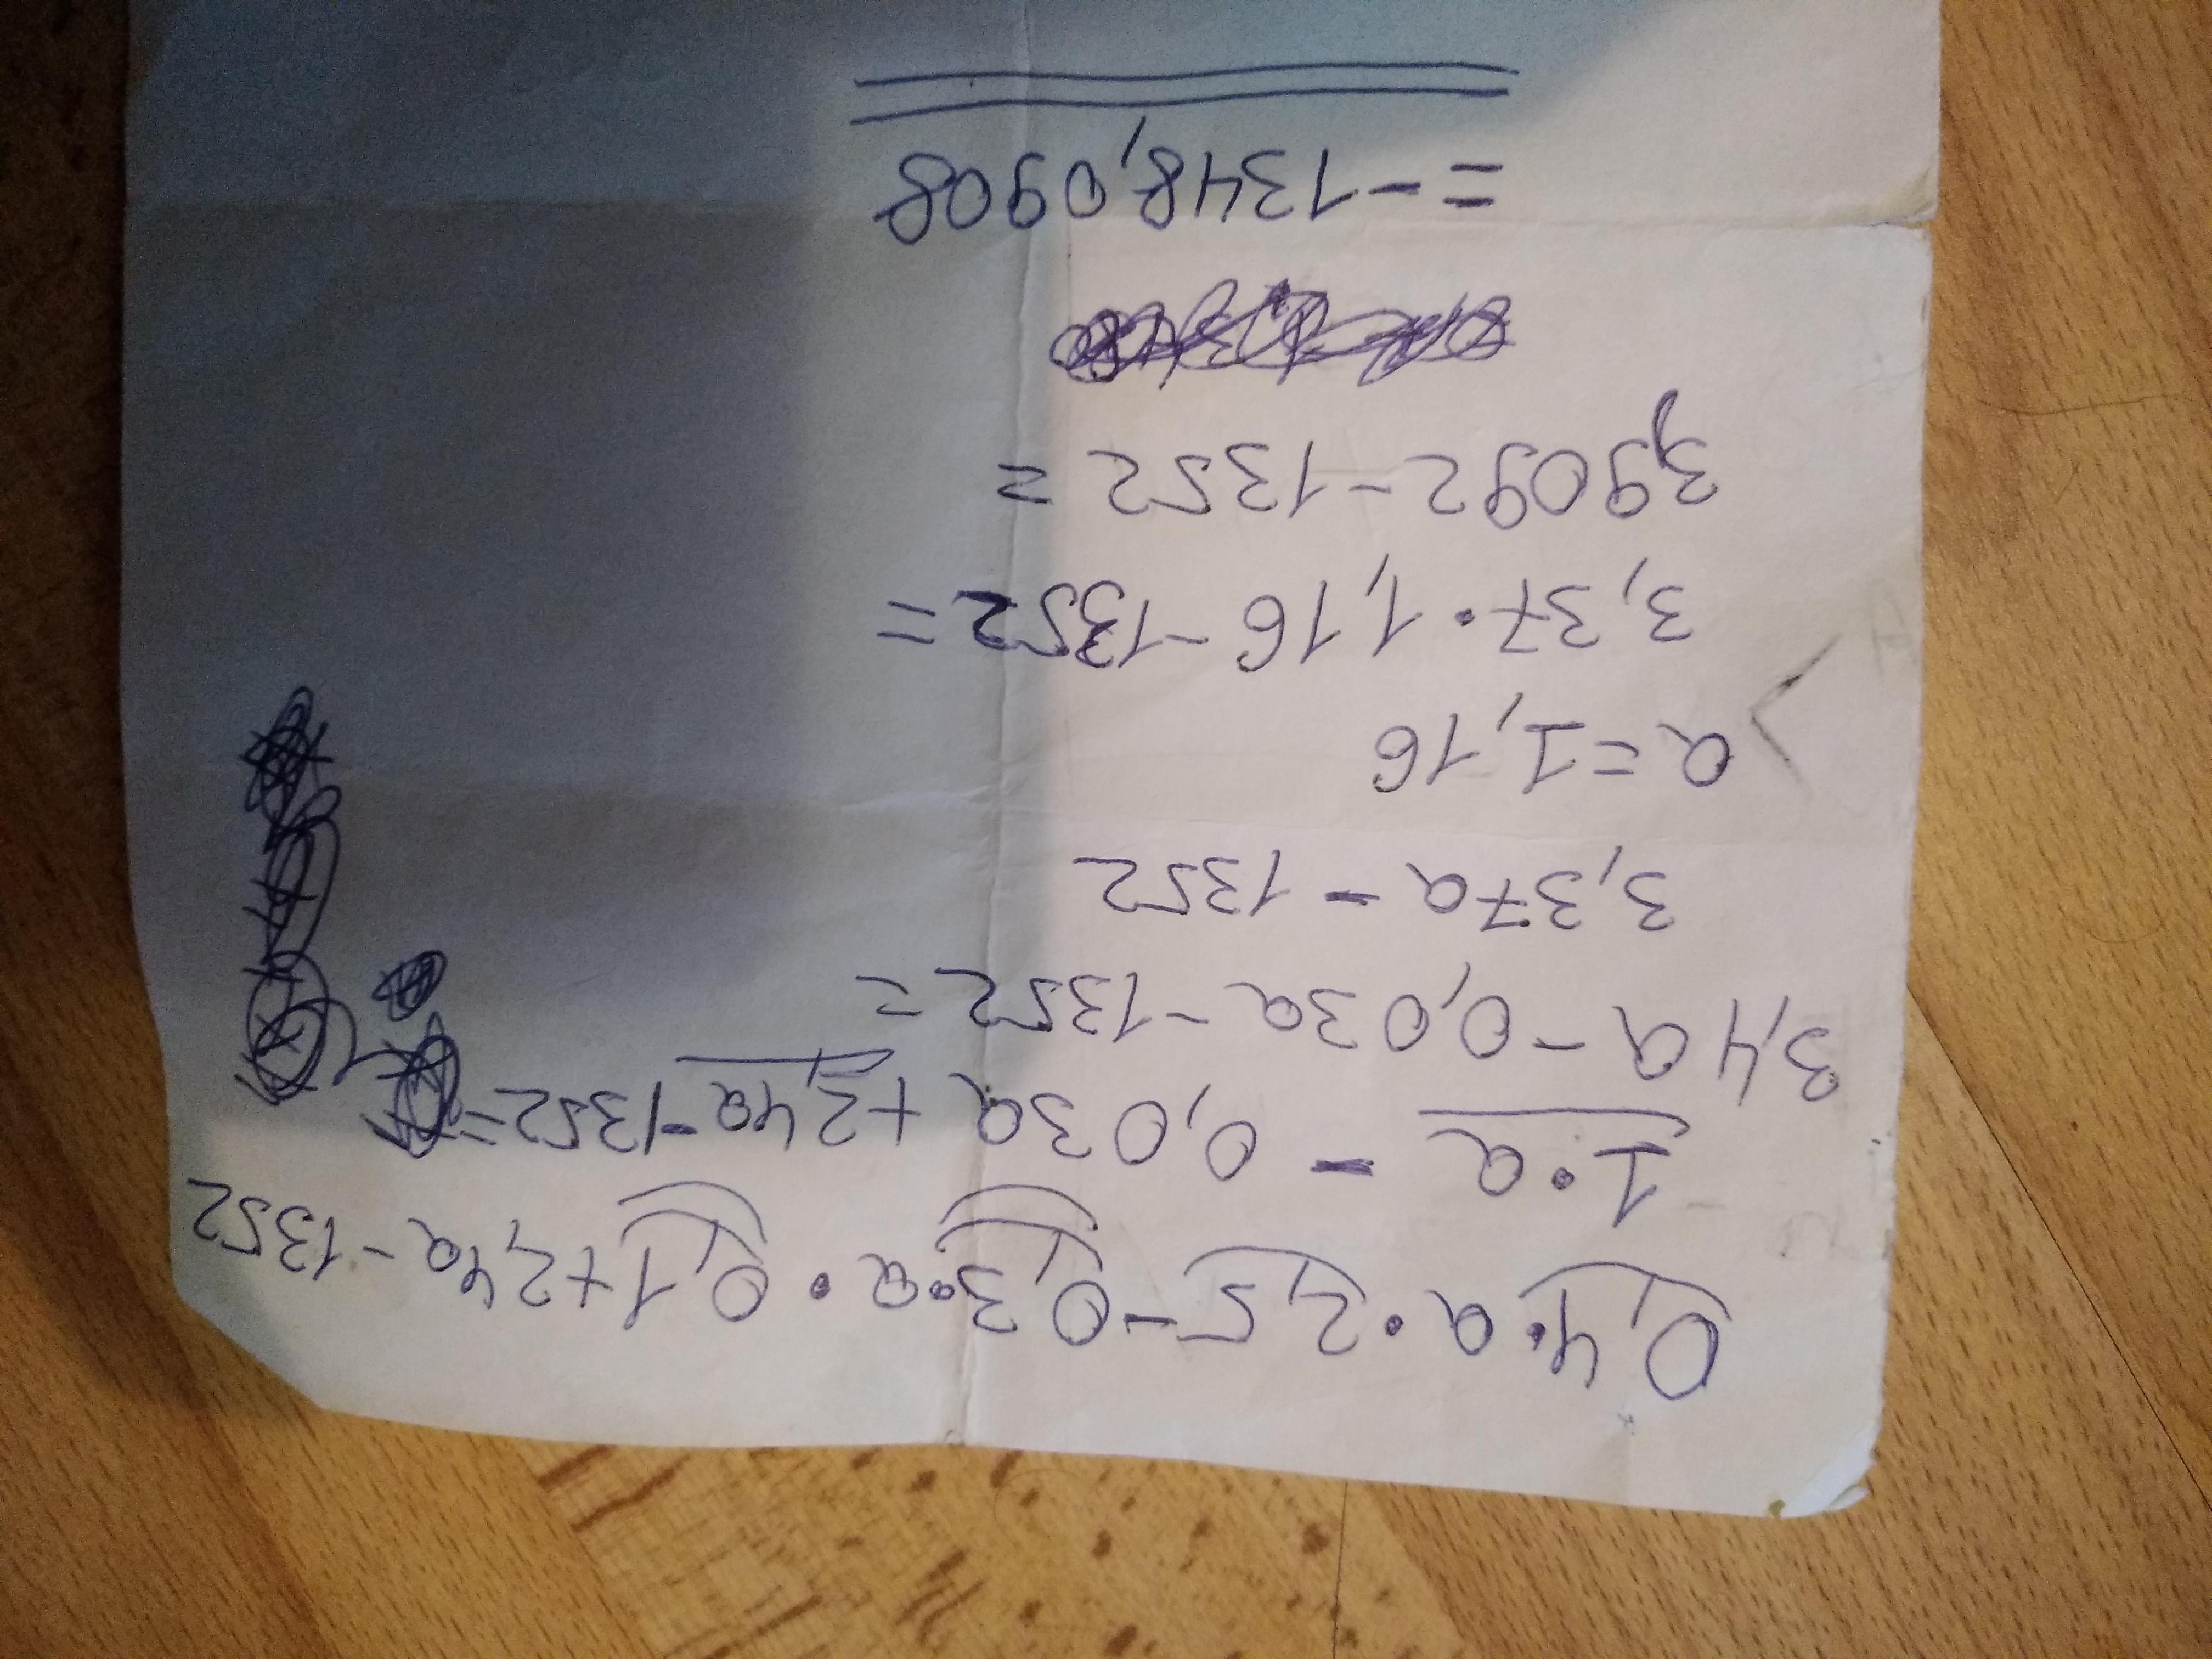 0,4·a·2,5-0,3·a·0,1+2,4a-1352
1·a - 0,03a+2,4a-1352=
3,4a-0,03a-1352=
3,37a-1352
a=1,16
3,37·1,16-1352=
3,9092-1352=
=-1348,0908